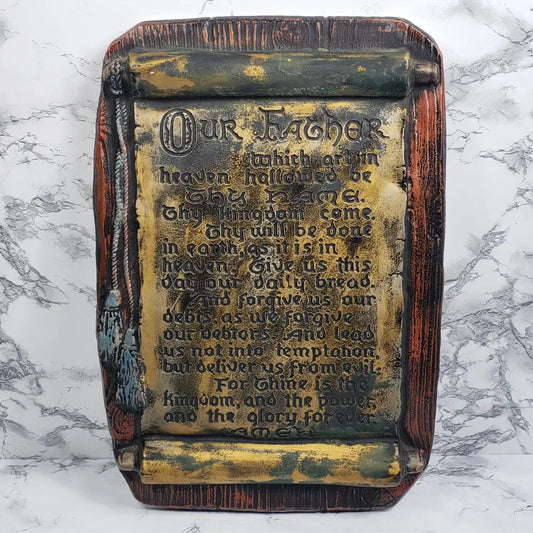 Our Father
Which art in
heaven hallowed be
Thy NAME.
Thy kingdom come.
Thy will be done
in earth, as it is in
heaven. Give us this
day our daily bread.
And forgive us our
debts, as we forgive
our debtors. And lead
us not into temptation,
but deliver us from evil.
For Thine is the
kingdom, and the power,
and the glory, for ever.
AMEN.